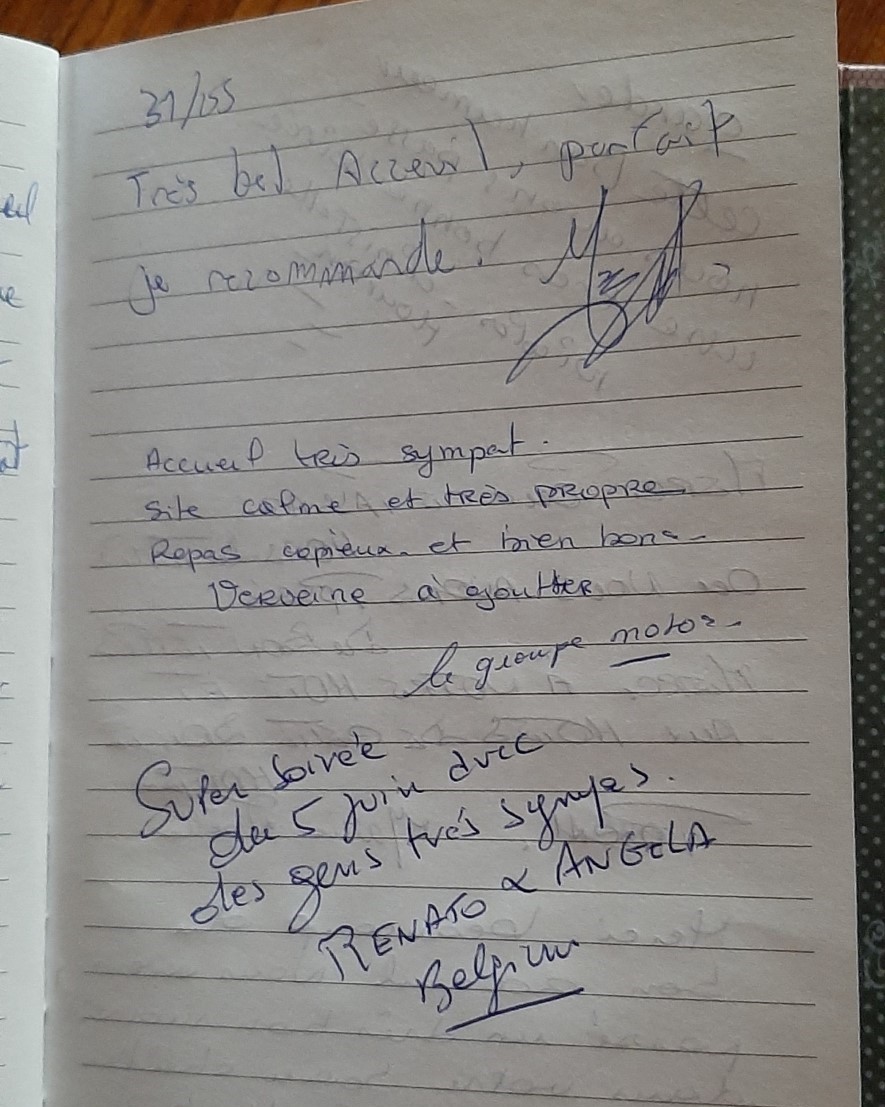 31/05
Très bel Accueil, parfait
je recommande.
Accueil très sympat.
Site calme et très propre
Repas copieux et bien bons
Verveine a goutter
le groupe motos
Super Soirée
du 5 juin avec
des gens très sympas.
RENATO & ANGELA
Belgium